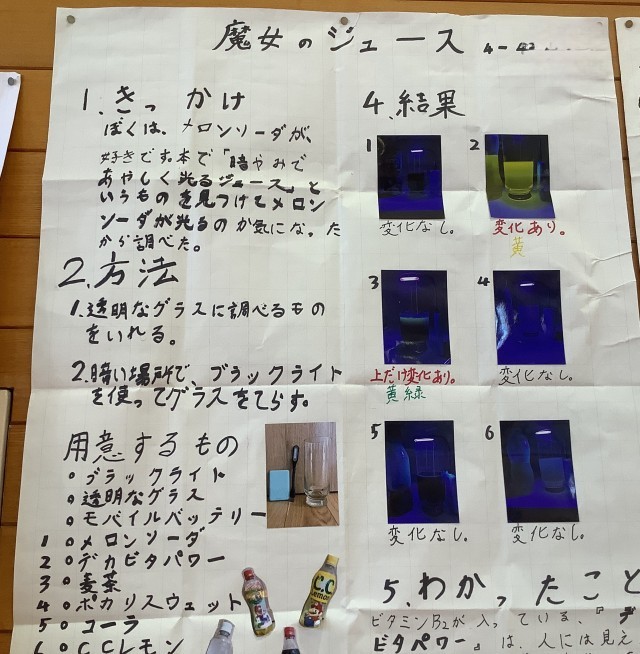 魔女のジュース 4-42
1.きっかけ
ぼくは、メロンソーダが、
好きです。本で「暗やみで
あやしく光るジュース」と
いうものを見つけてメロン
ソーダが光るのか気になった
から調べた。
2.方法
1.透明なグラスに調べるもの
をいれる。
2.暗い場所で、ブラックライト
を使ってグラスをてらす。
用意するもの
○ブラックライト
○透明なグラス
○モバイルバッテリー
1○メロンソーダ
2○デカビタパワー
3○麦茶
4○ポカリスウェット
5○コーラ
6○CCレモン
C.C.
Lemon
4.結果
1
変化なし。
2
変化あり。
黄
3
上だけ変化あり。
黄緑
4
変化なし。
5
変化なし。
6
変化なし。
5.わかったこと
ビタミンB2が入っている、「デ
ビタパワー」は、人には見え